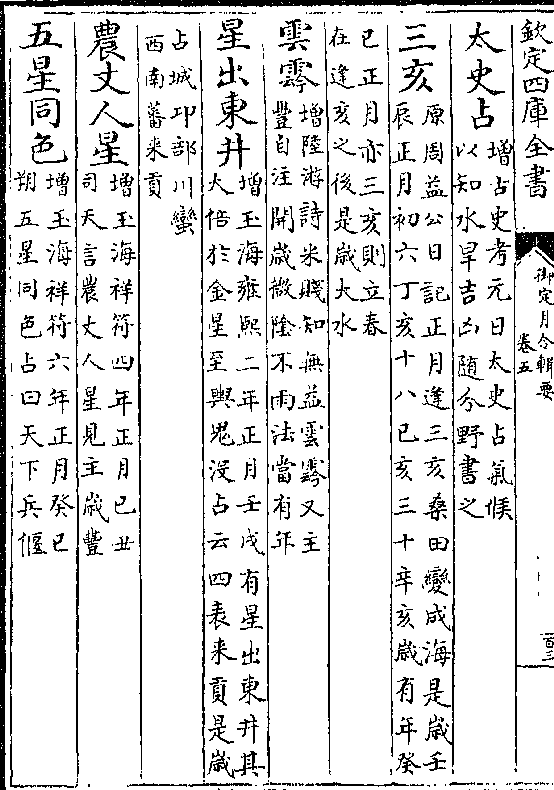 欽定四庫全書
御定月令輯要
卷五
百三
太史占
增占史考元日太史占氣候
以知水旱吉凶隨分野書之
三亥
原周益公日記正月逢三亥桑田變成海是歲壬
辰正月初六丁亥十八已亥三十辛亥歲有年癸
已正月亦三亥則立春
在逢亥之後是歲大水
雲霧
增陸游詩米賤知無益雲霧又主
豐自注開歲微陰不雨法當有年
星出東井
增玉海雍熙二年正月壬戌有星出東井其
大倍於金星至輿鬼沒占云四表來貢是歲
占城邛部川蠻
西南蕃来貢
農丈人星
增玉海祥符四年正月已丑
司天言農丈人星見主歲豐
五星同色
增玉海祥符六年正月癸已
朔五星同色占曰天下兵偃